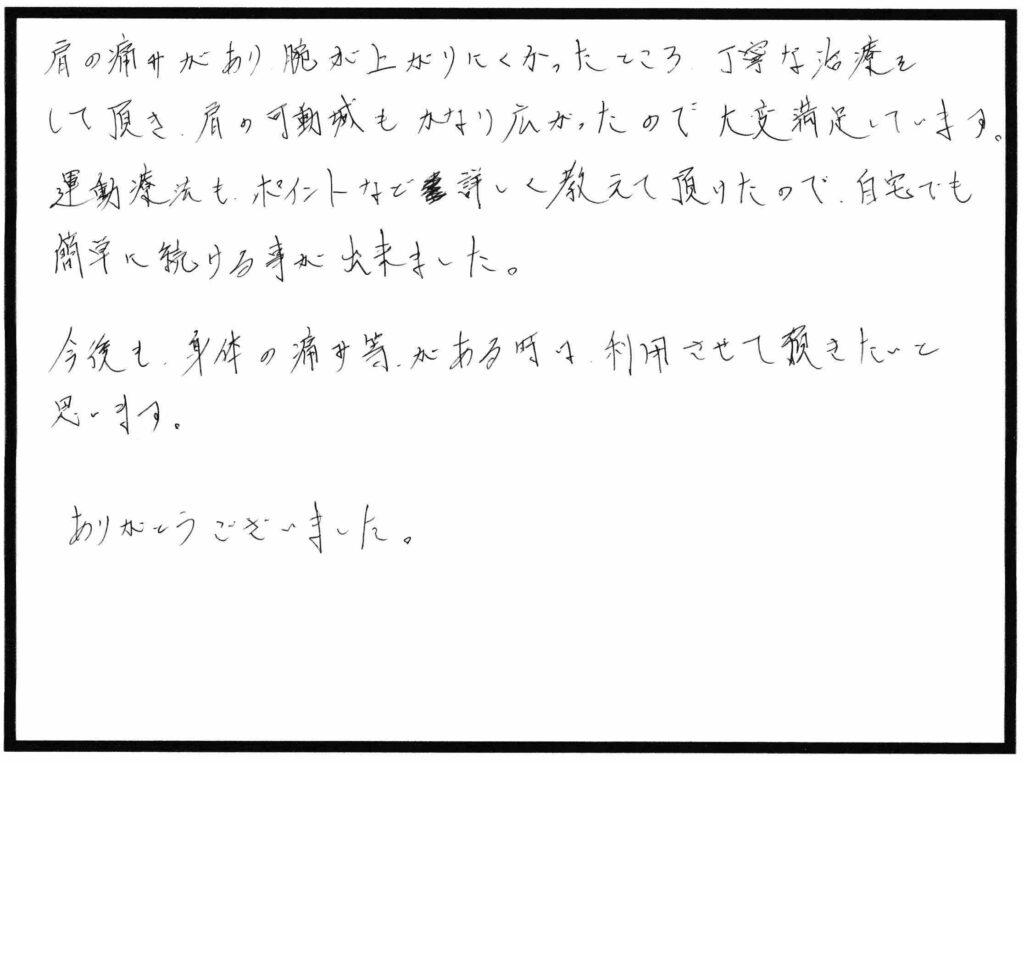 肩の痛みがあり、腕が上がりにくかったところ、丁寧な治療を
して頂き、肩の可動域もかなり広がったので大変満足しています。
運動療法も、ポイントなど詳しく教えて頂けたので、自宅でも
簡単に続ける事が出来ました。
今後も、身体の痛み等、がある時は、利用させて頂きたいと
思います。
ありがとうございました。